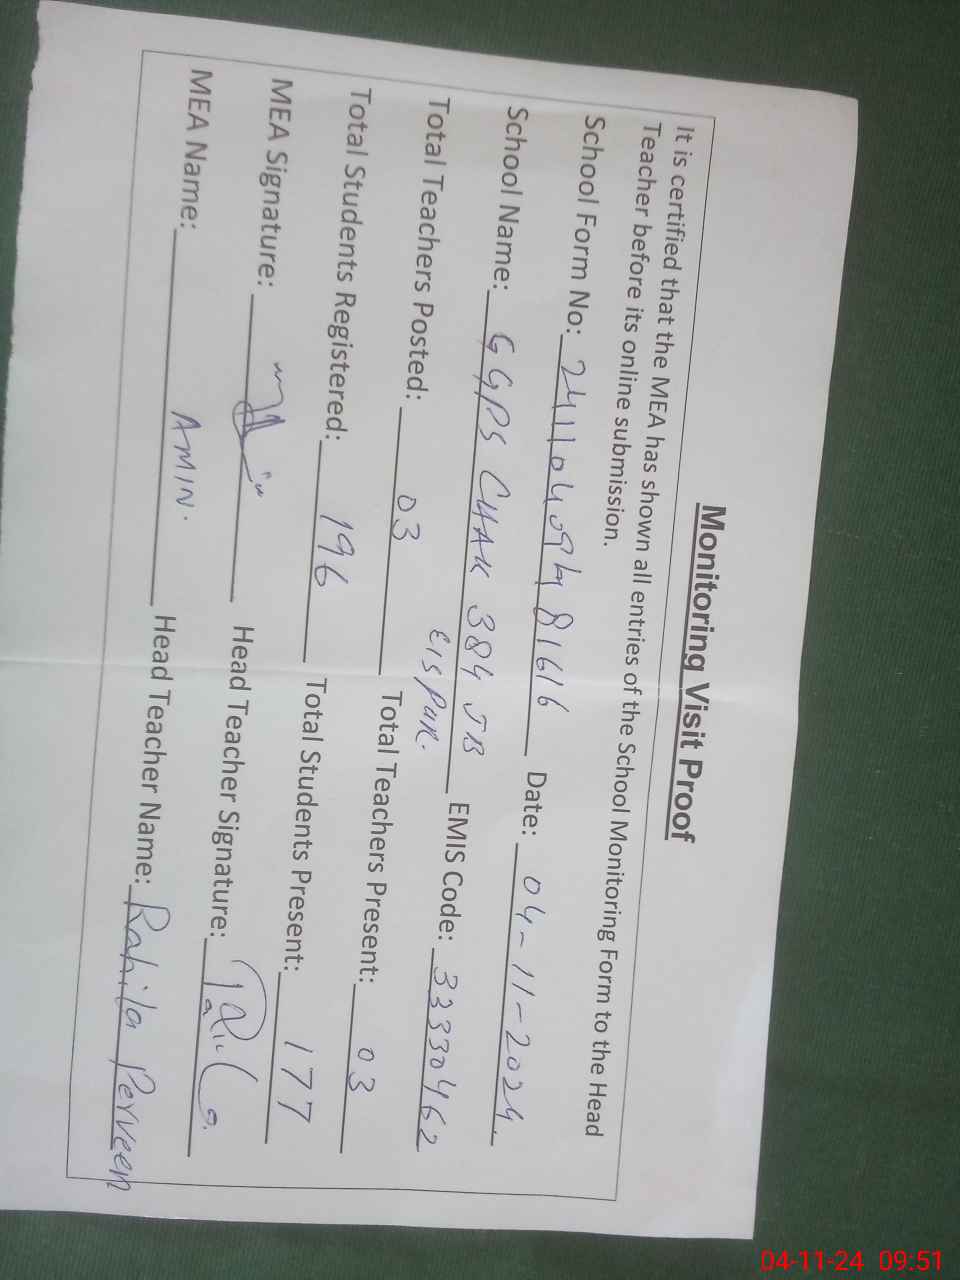 Monitoring Visit Proof
It is certified that the MEA has shown all entries of the School Monitoring Form to the Head
Teacher before its online submission.
School Form No: 24110409481616 Date: 04-11-2024
School Name: GGPS CHAK 384 JB EMIS Code: 33330462
Total Teachers Posted: 03 Total Teachers Present: 03
Total Students Registered: 196 Total Students Present: 177
MEA Signature: Head Teacher Signature:
MEA Name: AMIN. Head Teacher Name: Rahila Perveen
04-11-24 09:51